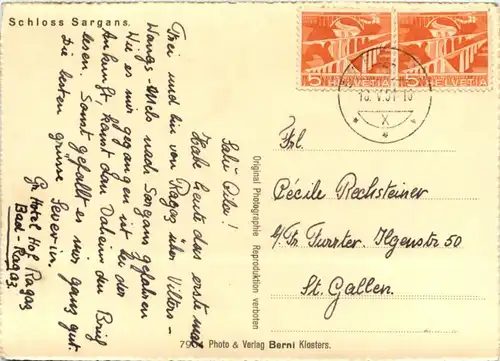 Schloss Sargans.
Salü Cila!
Habe heute das erste mal
frei und bin von Ragaz über Vilters-
Wangs-Mels nach Sargans gefahren
Wie es mir gegangen ist bei der
Ankunft kannst dan Daheim den Brief
lesen. Sonst gefallt es mir ganz gut
Die besten grüsse Severin.
Gr. Hotel Hof Ragaz
Bad-Ragaz
Original Photographie Reproduktion verboten
5 HELVETIA
5 HELVETIA
X
Frl.
Cécile Rechsteiner
Furster. Ilgenstr. 50
St. Gallen.
Photo & Verlag Berni Klosters.